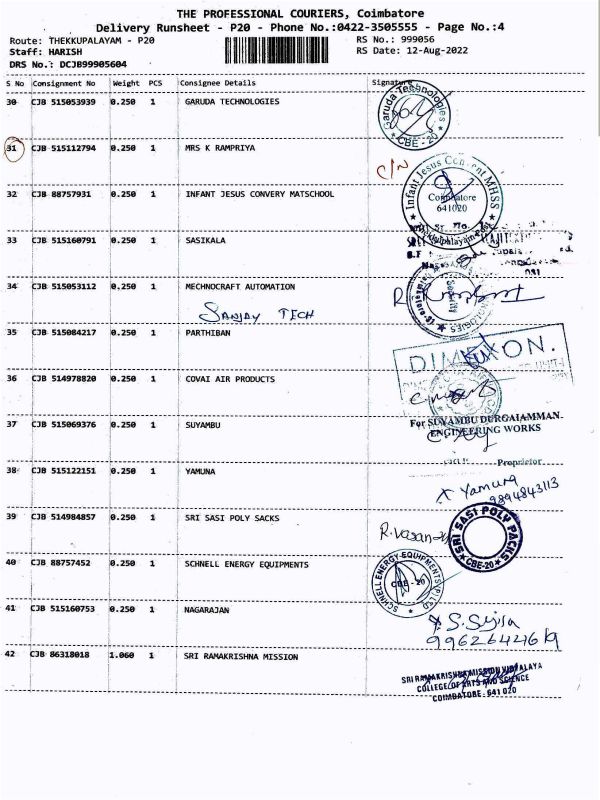 THE PROFESSIONAL COURIERS, Coimbatore
Delivery Runsheet - P20 - Phone No.:0422-3505555 - Page No.:4
Route: THEKKUPALAYAM - P20 RS No.: 999056
Staff: HARISH RS Date: 12-Aug-2022
DRS No.: DCJB99905604
S No Consignment No Weight PCS Consignee Details Signature
30 CJB 515053939 0.250 1 GARUDA TECHNOLOGIES
Garuda Technologies
* CBE - 20 *
31 CJB 515112794 0.250 1 MRS K RAMPRIYA
C/N
32 CJB 88757931 0.250 1 INFANT JESUS CONVERY MATSCHOOL
Infant Jesus Con ent MHSS
Coimbatore
641020
33 CJB 515160791 0.250 1 SASIKALA
34 CJB 515053112 0.250 1 MECHNOCRAFT AUTOMATION
SANJAY TECH
35 CJB 515084217 0.250 1 PARTHIBAN
36 CJB 514978820 0.250 1 COVAI AIR PRODUCTS
37 CJB 515069376 0.250 1 SUYAMBU
For SUYAMBU DURGAIAMMAN
ENGINEERING WORKS
Proprietor
38 CJB 515122151 0.250 1 YAMUNA
Yamuna
9894843113
39 CJB 514984857 0.250 1 SRI SASI POLY SACKS
SRI SASI POLY PACKS
* CBE-20 *
40 CJB 88757452 0.250 1 SCHNELL ENERGY EQUIPMENTS
SCHNELL ENERGY EQUIPMENTS (P) LTD
CBE - 20
41 CJB 515160753 0.250 1 NAGARAJAN
42 CJB 86318018 1.060 1 SRI RAMAKRISHNA MISSION
SRI RAMAKRISHNA MISSION VIDYALAYA
COLLEGE OF ARTS AND SCIENCE
COIMBATORE - 641 020